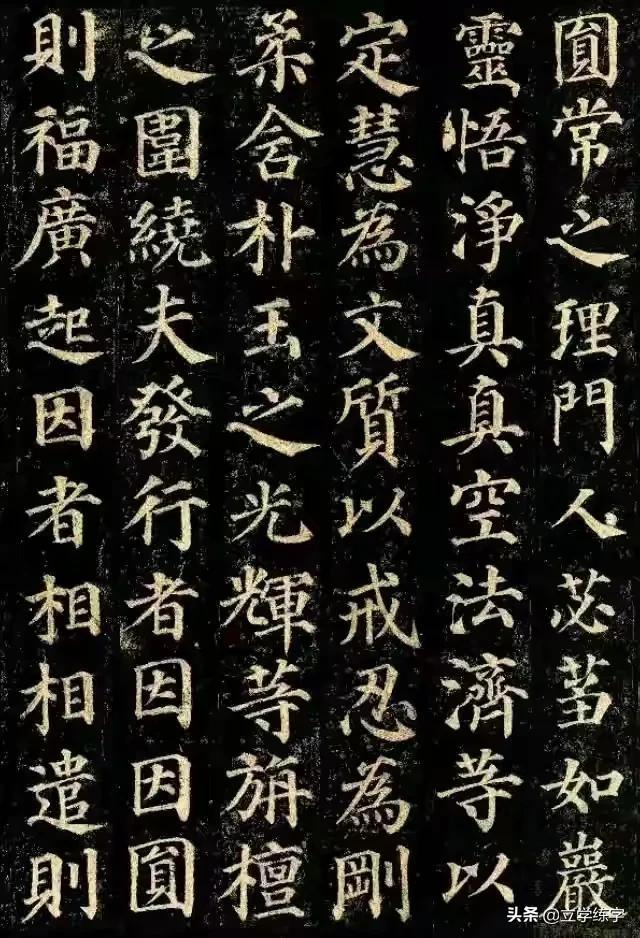 圎常之理門人苾蒭如巖
靈悟淨真真空法濟等以
定慧為文質以戒忍為剛
柔含朴玉之光輝等旃檀
之圍繞夫發行者因因圎
則福廣起因者相相遣則
头条 @立学练字